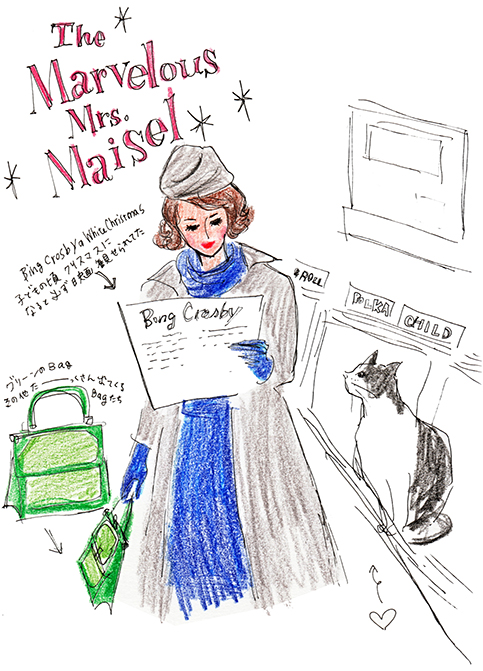 The
Marvelous
Mrs.
Maisel
Bing Crosbyのwhite Christmas
子どもの頃 クリスマスに
なると必ず母に映画を見せられてた
Bing Crosby
ROLL
POLKA
CHILD
グリーンのBag
その他た――っくさんでてくる
Bagたち